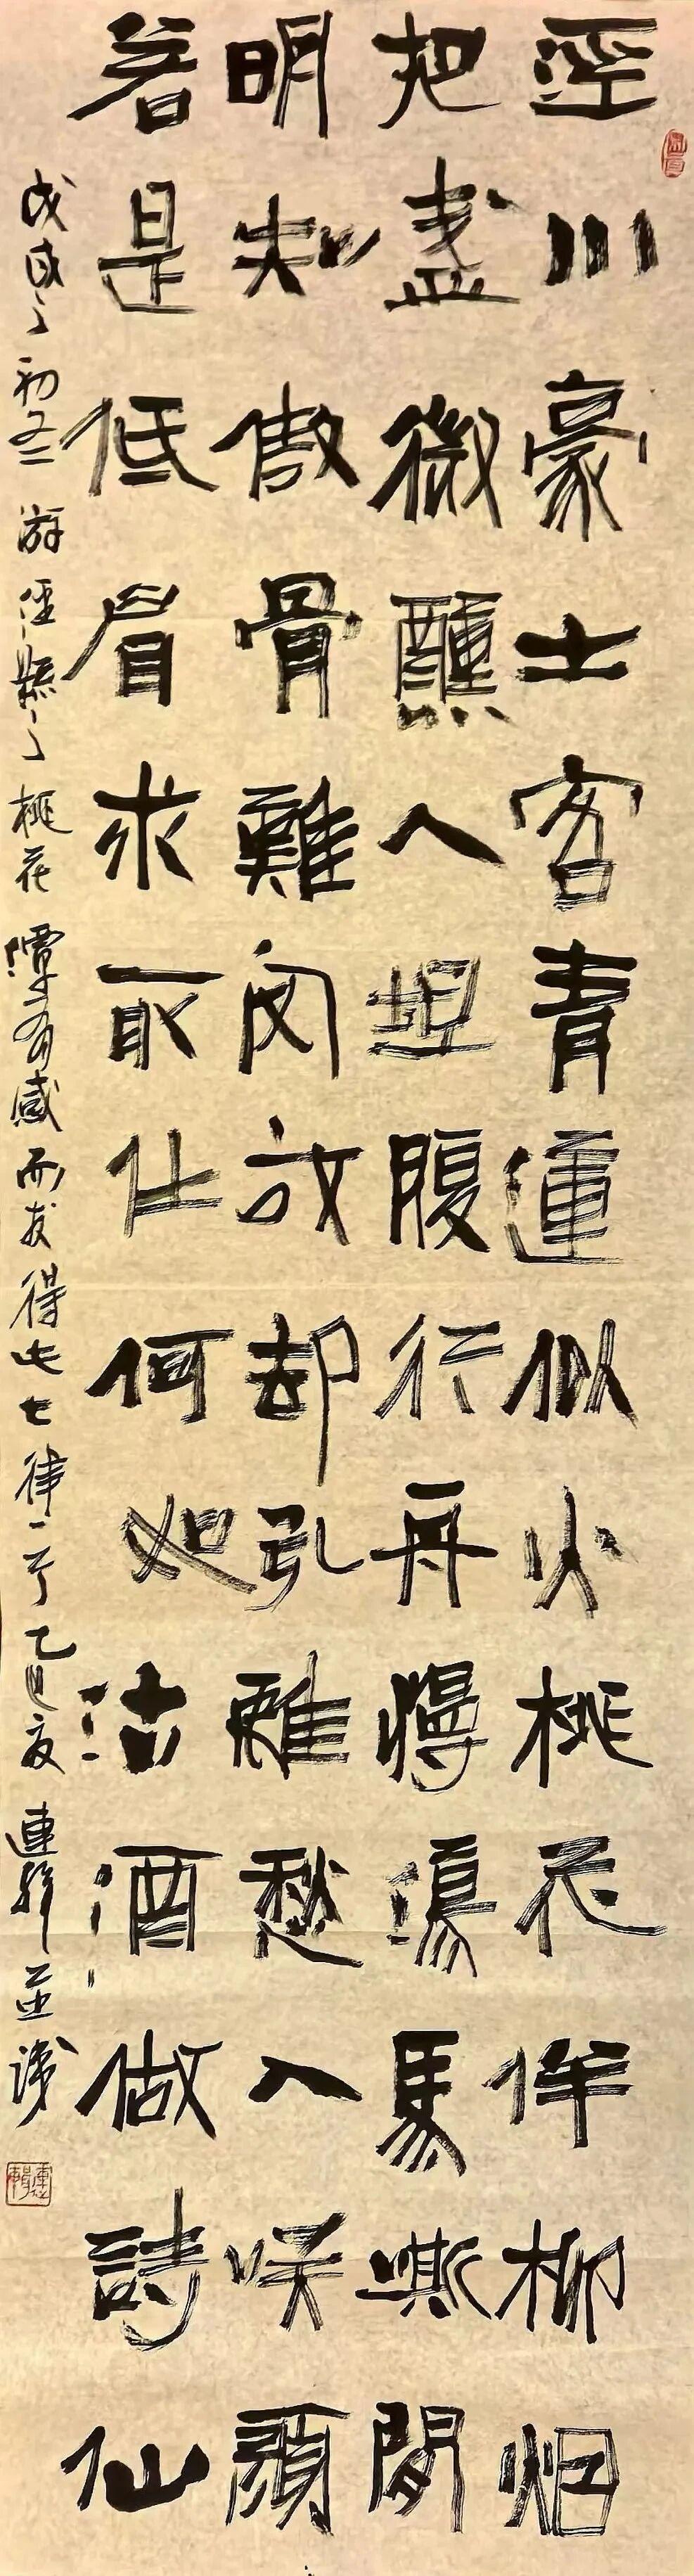 涇川豪士客青蓮似火桃花伴柳烟
把盞微醺人坦腹行舟慢蕩馬嘶間
明知傲骨難放却引離愁入咲
若是低眉求取仕何如沽酒做詩仙
戊戌之初冬游涇縣之桃花潭有感而發得此七律一首乙巳夏連輝並識